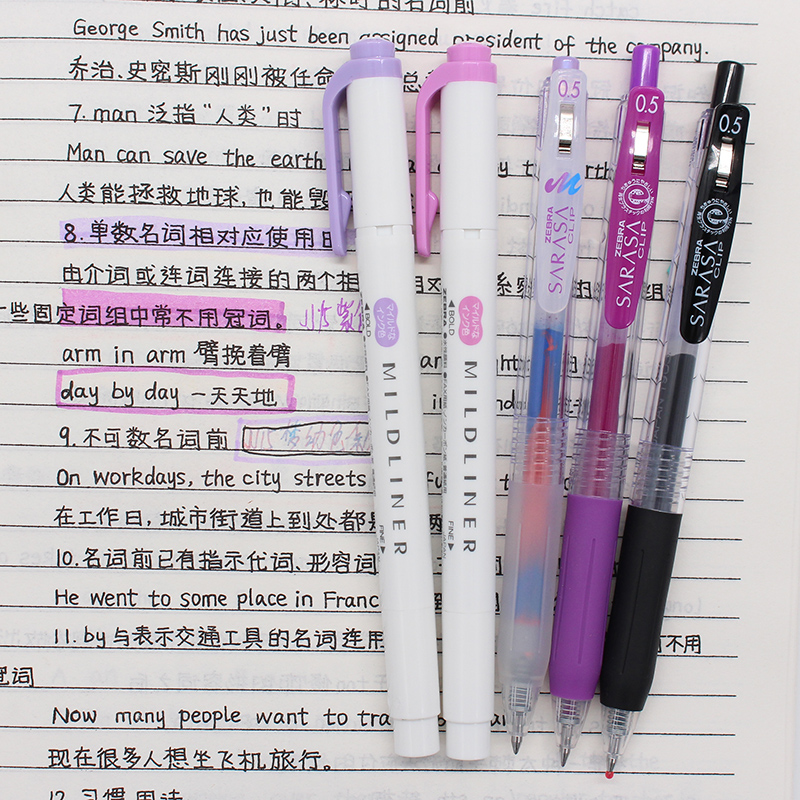 George Smith has just been assigned president of the company.
乔治.史密斯刚刚被任命
7. man 泛指“人类”时
Man can save the earth
人类能拯救地球,也能毁
8.单数名词相对应使用时
由介词或连词连接的两个相
些固定词组中常不用冠词。JJ15
arm in arm 臂挽着臂
day by day 一天天地
9. 不可数名词前 JJ15
On workdays, the city streets
在工作日,城市街道上到处都是
10. 名词前已有指示代词、形容词
He went to some place in Franc
11. by与表示交通工具的名词连用 不用
冠词
Now many people want to tra
现在很多人想坐飞机旅行。
12. 习惯用法
マイルドな
インク色
◀BOLD
MILDLINER
FINE▶
マイルドな
インク色
ZEBRA
◀BOLD
MILDLINER
FINE▶
0.5
ZEBRA
SARASA
CLIP
0.5
ZEBRA
SARASA
CLIP
0.5
ZEBRA
SARASA
CLIP